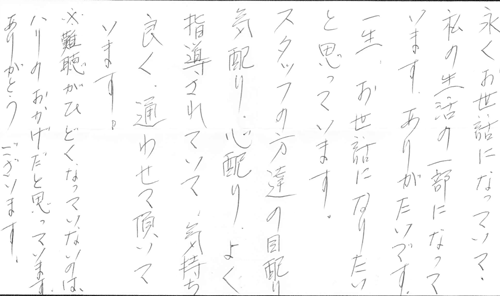 永くお世話になっていて、
私の生活の一部になって
います。ありがたいです。
一生、お世話になりたい
と思っています。
スタッフの方達の目配り
気配り、心配り、よく
指導されていて、気持ち
良く、通わせて頂いて
います。
※難聴がひどくなっていないのは、
ハリのおかげだと思っています。
ありがとうございます。